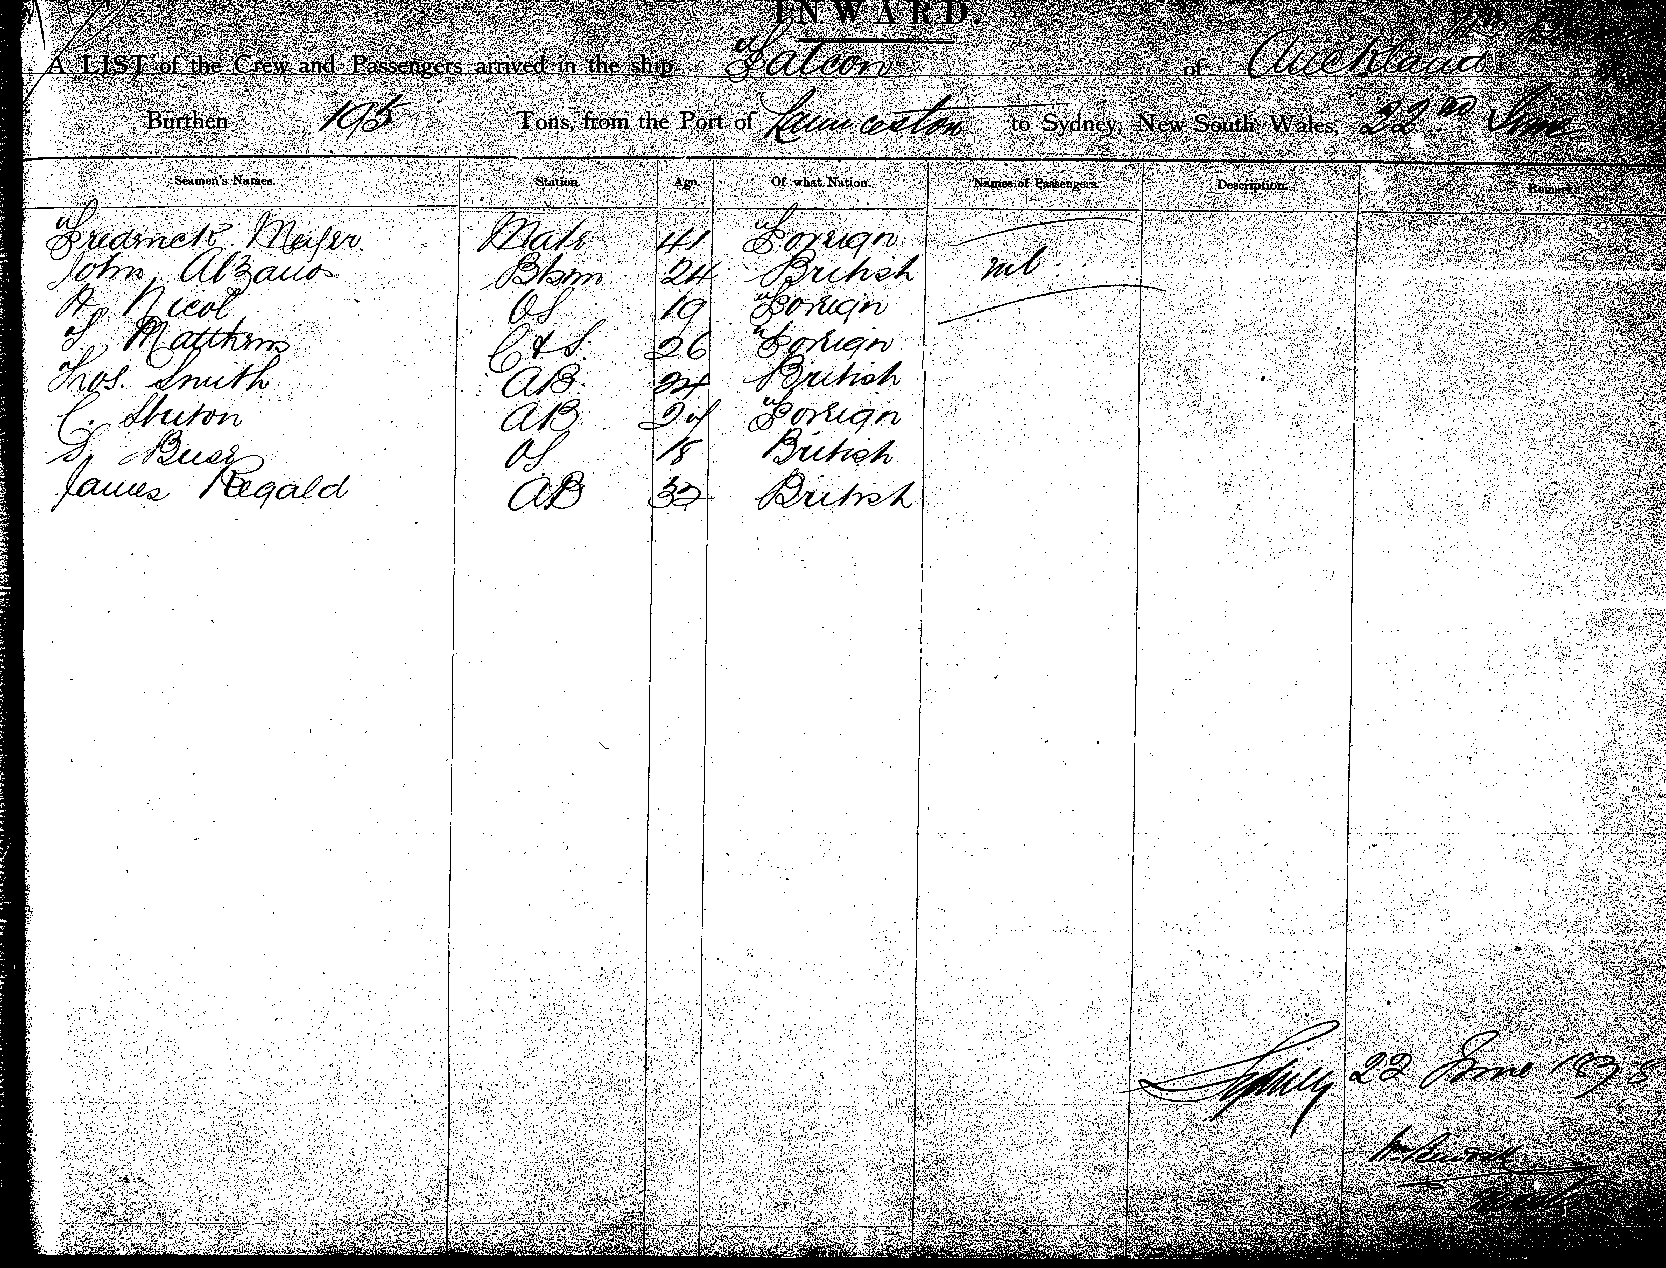 INWARD.
A LIST of the Crew and Passengers arrived in the ship Falcon of Auckland
Burthen 195 Tons, from the Port of Launceston to Sydney, New South Wales, 22nd June
Seamen's Names. Station. Age. Of what Nation. Names of Passengers. Description. Remarks
Frederick Meyer Mate 41 Foreign
John Bosm 24 British nil
Nicol OS 19 Foreign
Matthews C & S. 26 Foreign
Thos. Smith AB. 24 British
C. AB 27 Foreign
S. OS 18 British
James Regald AB 32 British
Sydney 22 June 1878